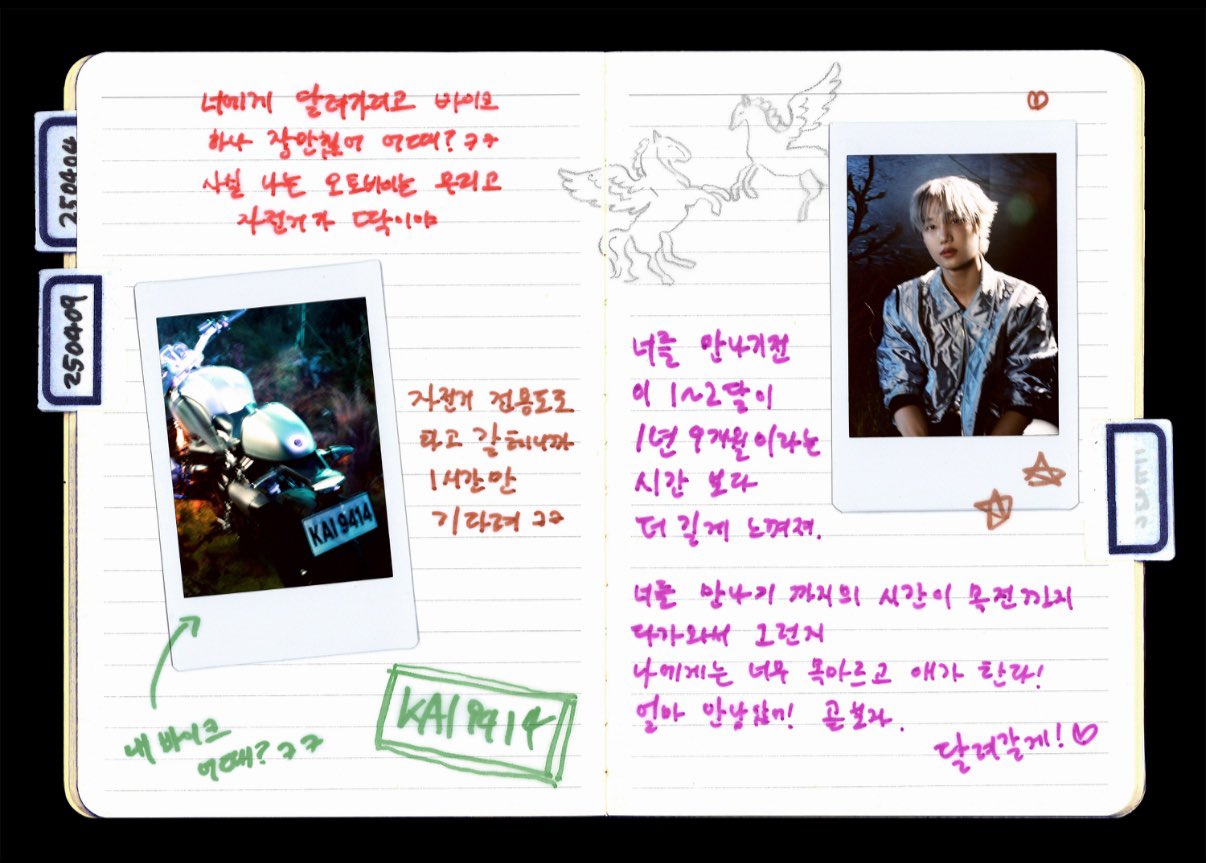 250404
250409
너에게 달려가려고 바이크
하나 장만했어 어때? ㅋㅋ
사실 나는 오토바이는 무리고
자전거가 딱이야
KAI 9414
자전거 전용도로
타고 갈테니까
1시간만
기다려 ㅋㅋ
내 바이크
어때? ㅋㅋ
KAI 9414
너를 만나기전
이 1~2달이
1년 9개월이라는
시간 보다
더 길게 느껴져.
너를 만나기 까지의 시간이 목전까지
다가와서 그런지
나에게는 너무 목마르고 애가 탄다!
얼마 안남았어! 곧 보자.
달려갈게! ♡